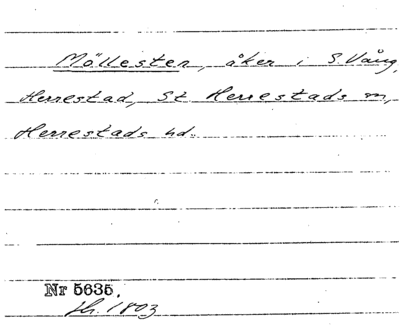 Möllesten, åker i S. Vång,
Herrestad, St Herrestads sn,
Herrestads hd.
Nr 5635.
1803